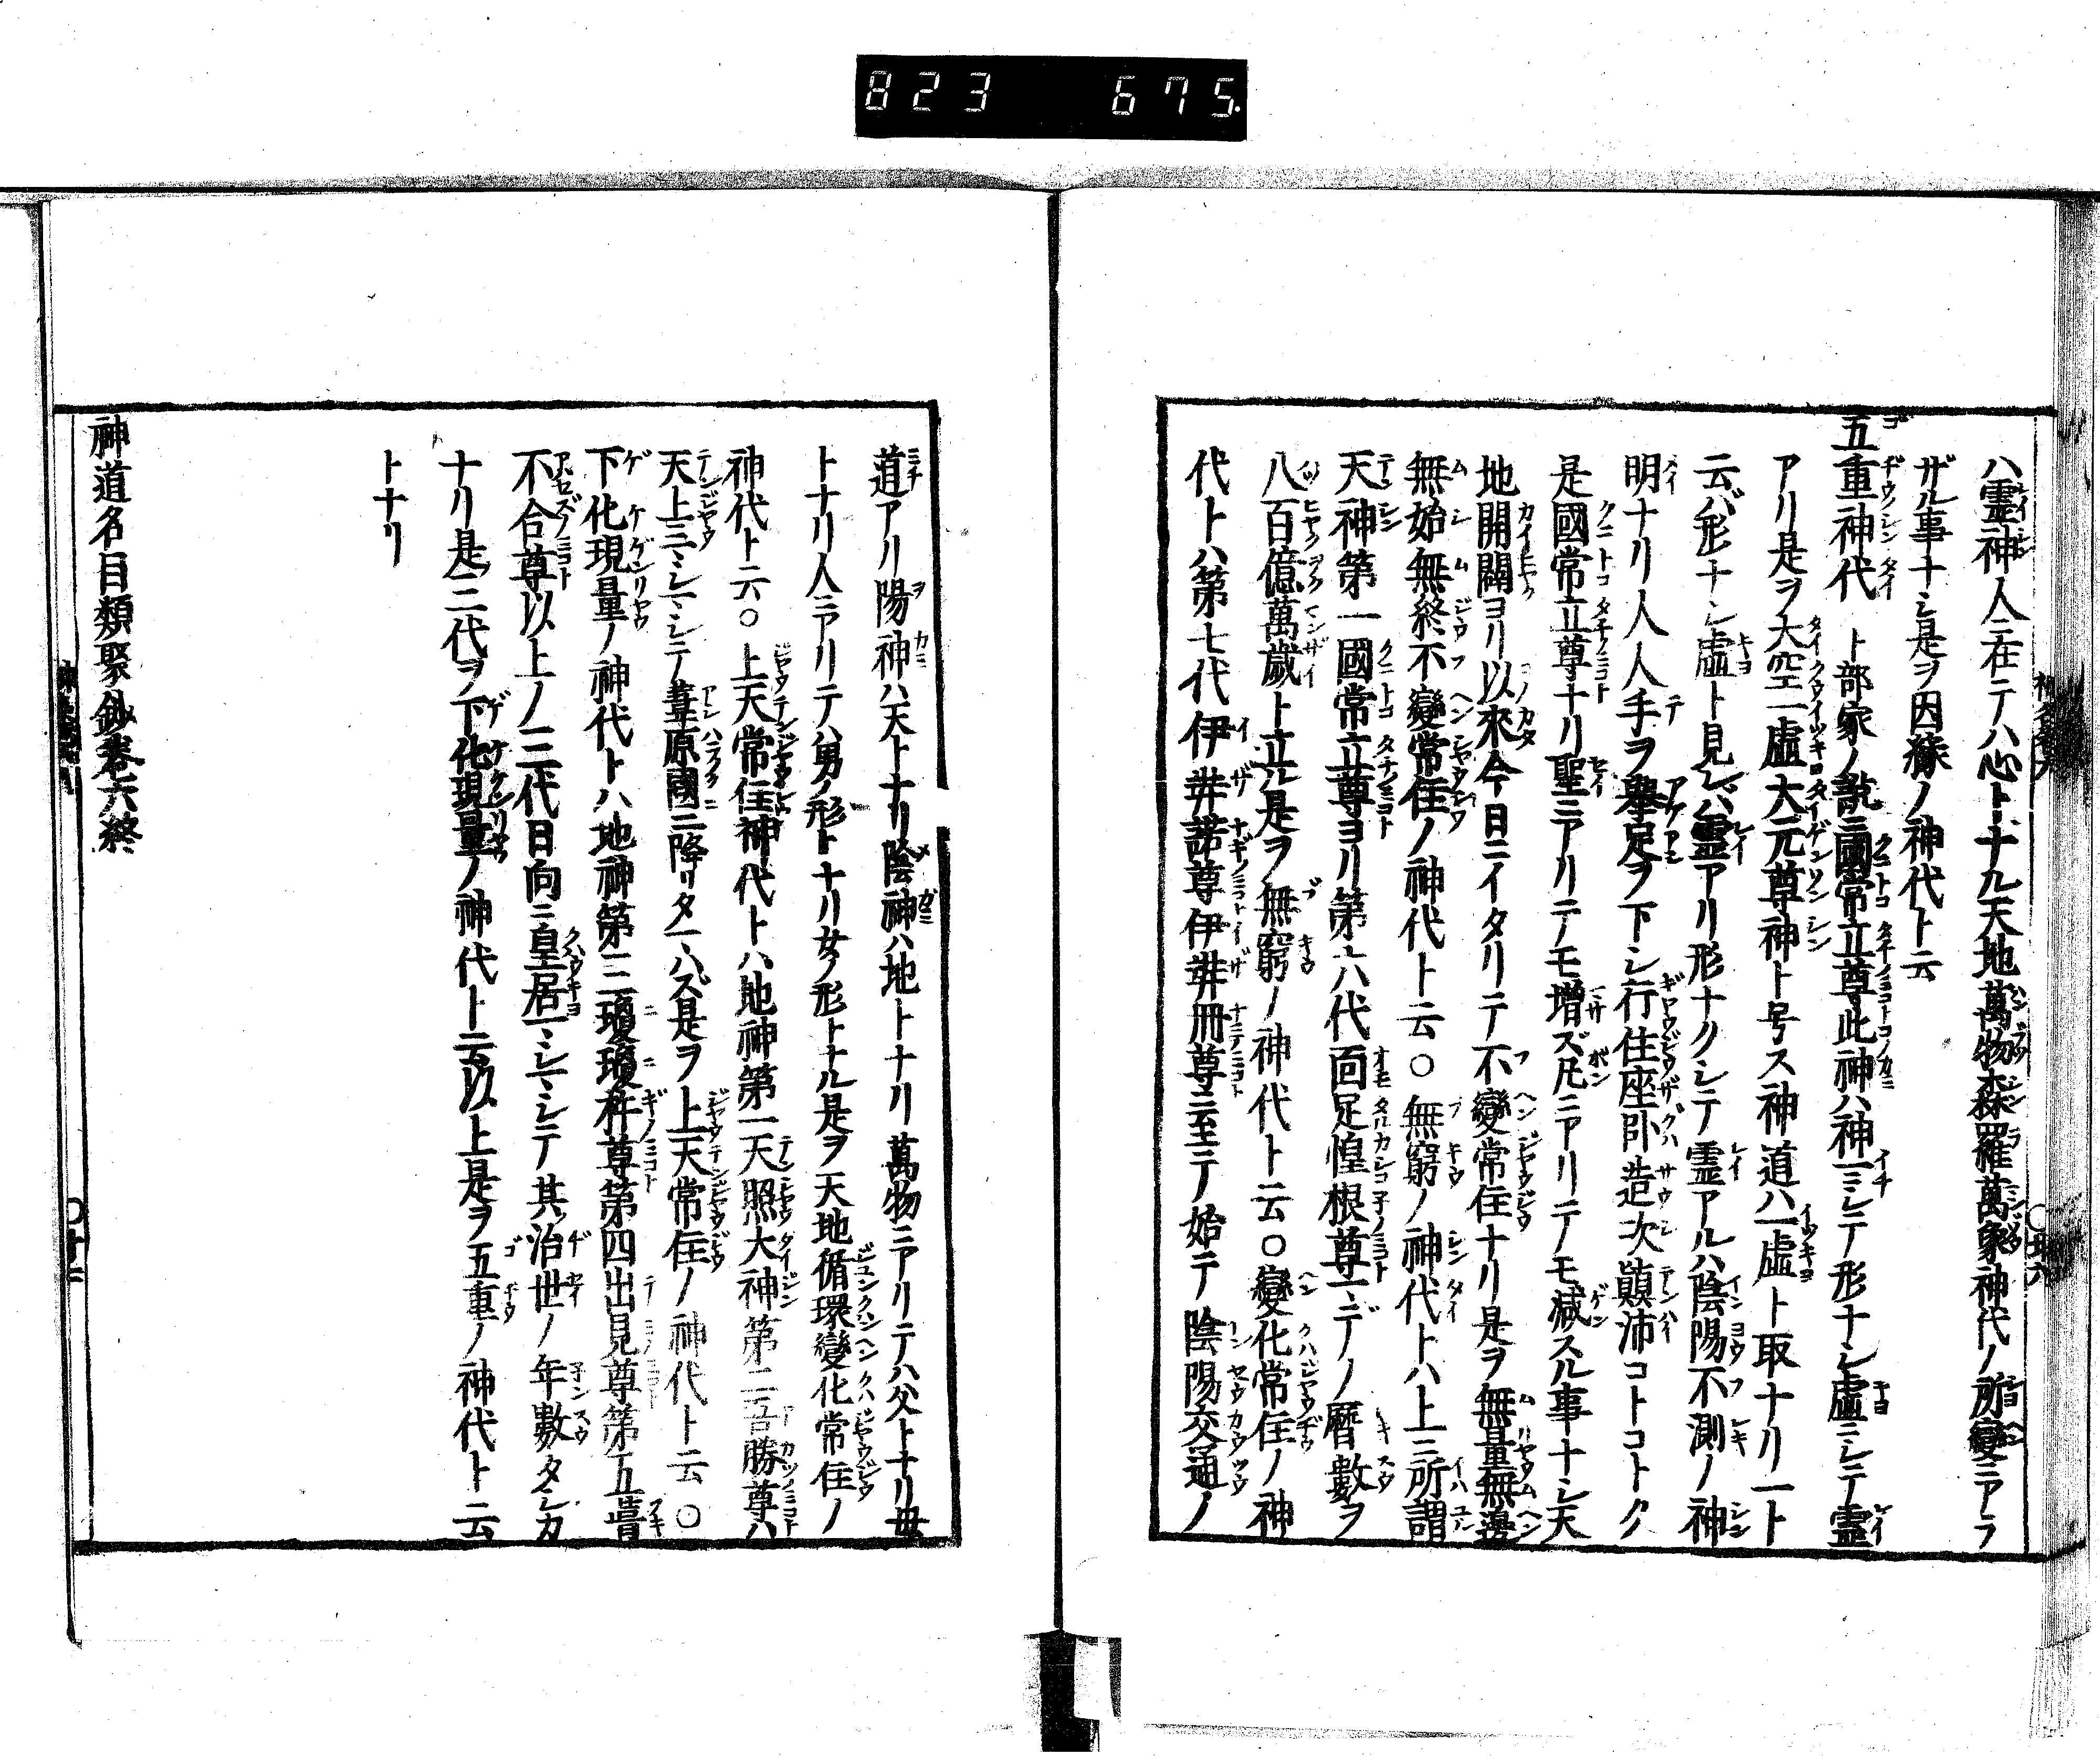 823 675
ハ霊神人ニ在テハ心トナル天地萬物森羅萬象神代ノ所變ニアラ
ザル事ナシ是ヲ因縁ノ神代ト云
五重神代 卜部家ノ説ニ國常立尊此神ハ神ニシテ形ナシ虚ニシテ霊
アリ是ヲ大空一虚大元尊神ト号ス神道ハ一虚ト取ナリ一ト
云バ形ナシ虚ト見レバ霊アリ形ナクシテ霊アルハ陰陽不測ノ神
明ナリ人人手ヲ擧足ヲ下シ行住座卧造次顛沛コトコトク
是國常立尊ナリ聖ニアリテモ増ズ凡ニアリテモ减スル事ナシ天
地開闢ヨリ以來今日ニイタリテ不變常住ナリ是ヲ無量無邊
無始無終不變常住ノ神代ト云〇無窮ノ神代トハ上ニ所謂
天神第一國常立尊ヨリ第六代面足惶根尊マデノ暦數ヲ
八百億萬歳ト立ル是ヲ無窮ノ神代ト云〇變化常住ノ神
代トハ第七代伊弉諾尊伊弉冊尊ニ至テ始テ陰陽交通ノ
道アリ陽神ハ天トナリ陰神ハ地トナリ萬物ニアリテハ父トナリ母
トナリ人ニアリテハ男ノ形トナリ女ノ形トナル是ヲ天地循環變化常住ノ
神代ト云〇上天常住神代トハ地神第一天照大神第二吾勝尊ハ
天上ニマシマシテ葦原國ニ降リタマハズ是ヲ上天常住ノ神代ト云〇
下化現量ノ神代トハ地神第三瓊瓊杵尊第四出見尊第五葺
不合尊以上ノ三代日向ニ皇居マシマシテ其治世ノ年數タシカ
ナリ是三代ヲ下化現量ノ神代ト云以上是ヲ五重ノ神代ト云
トナリ
神道名目類聚鈔巻六終